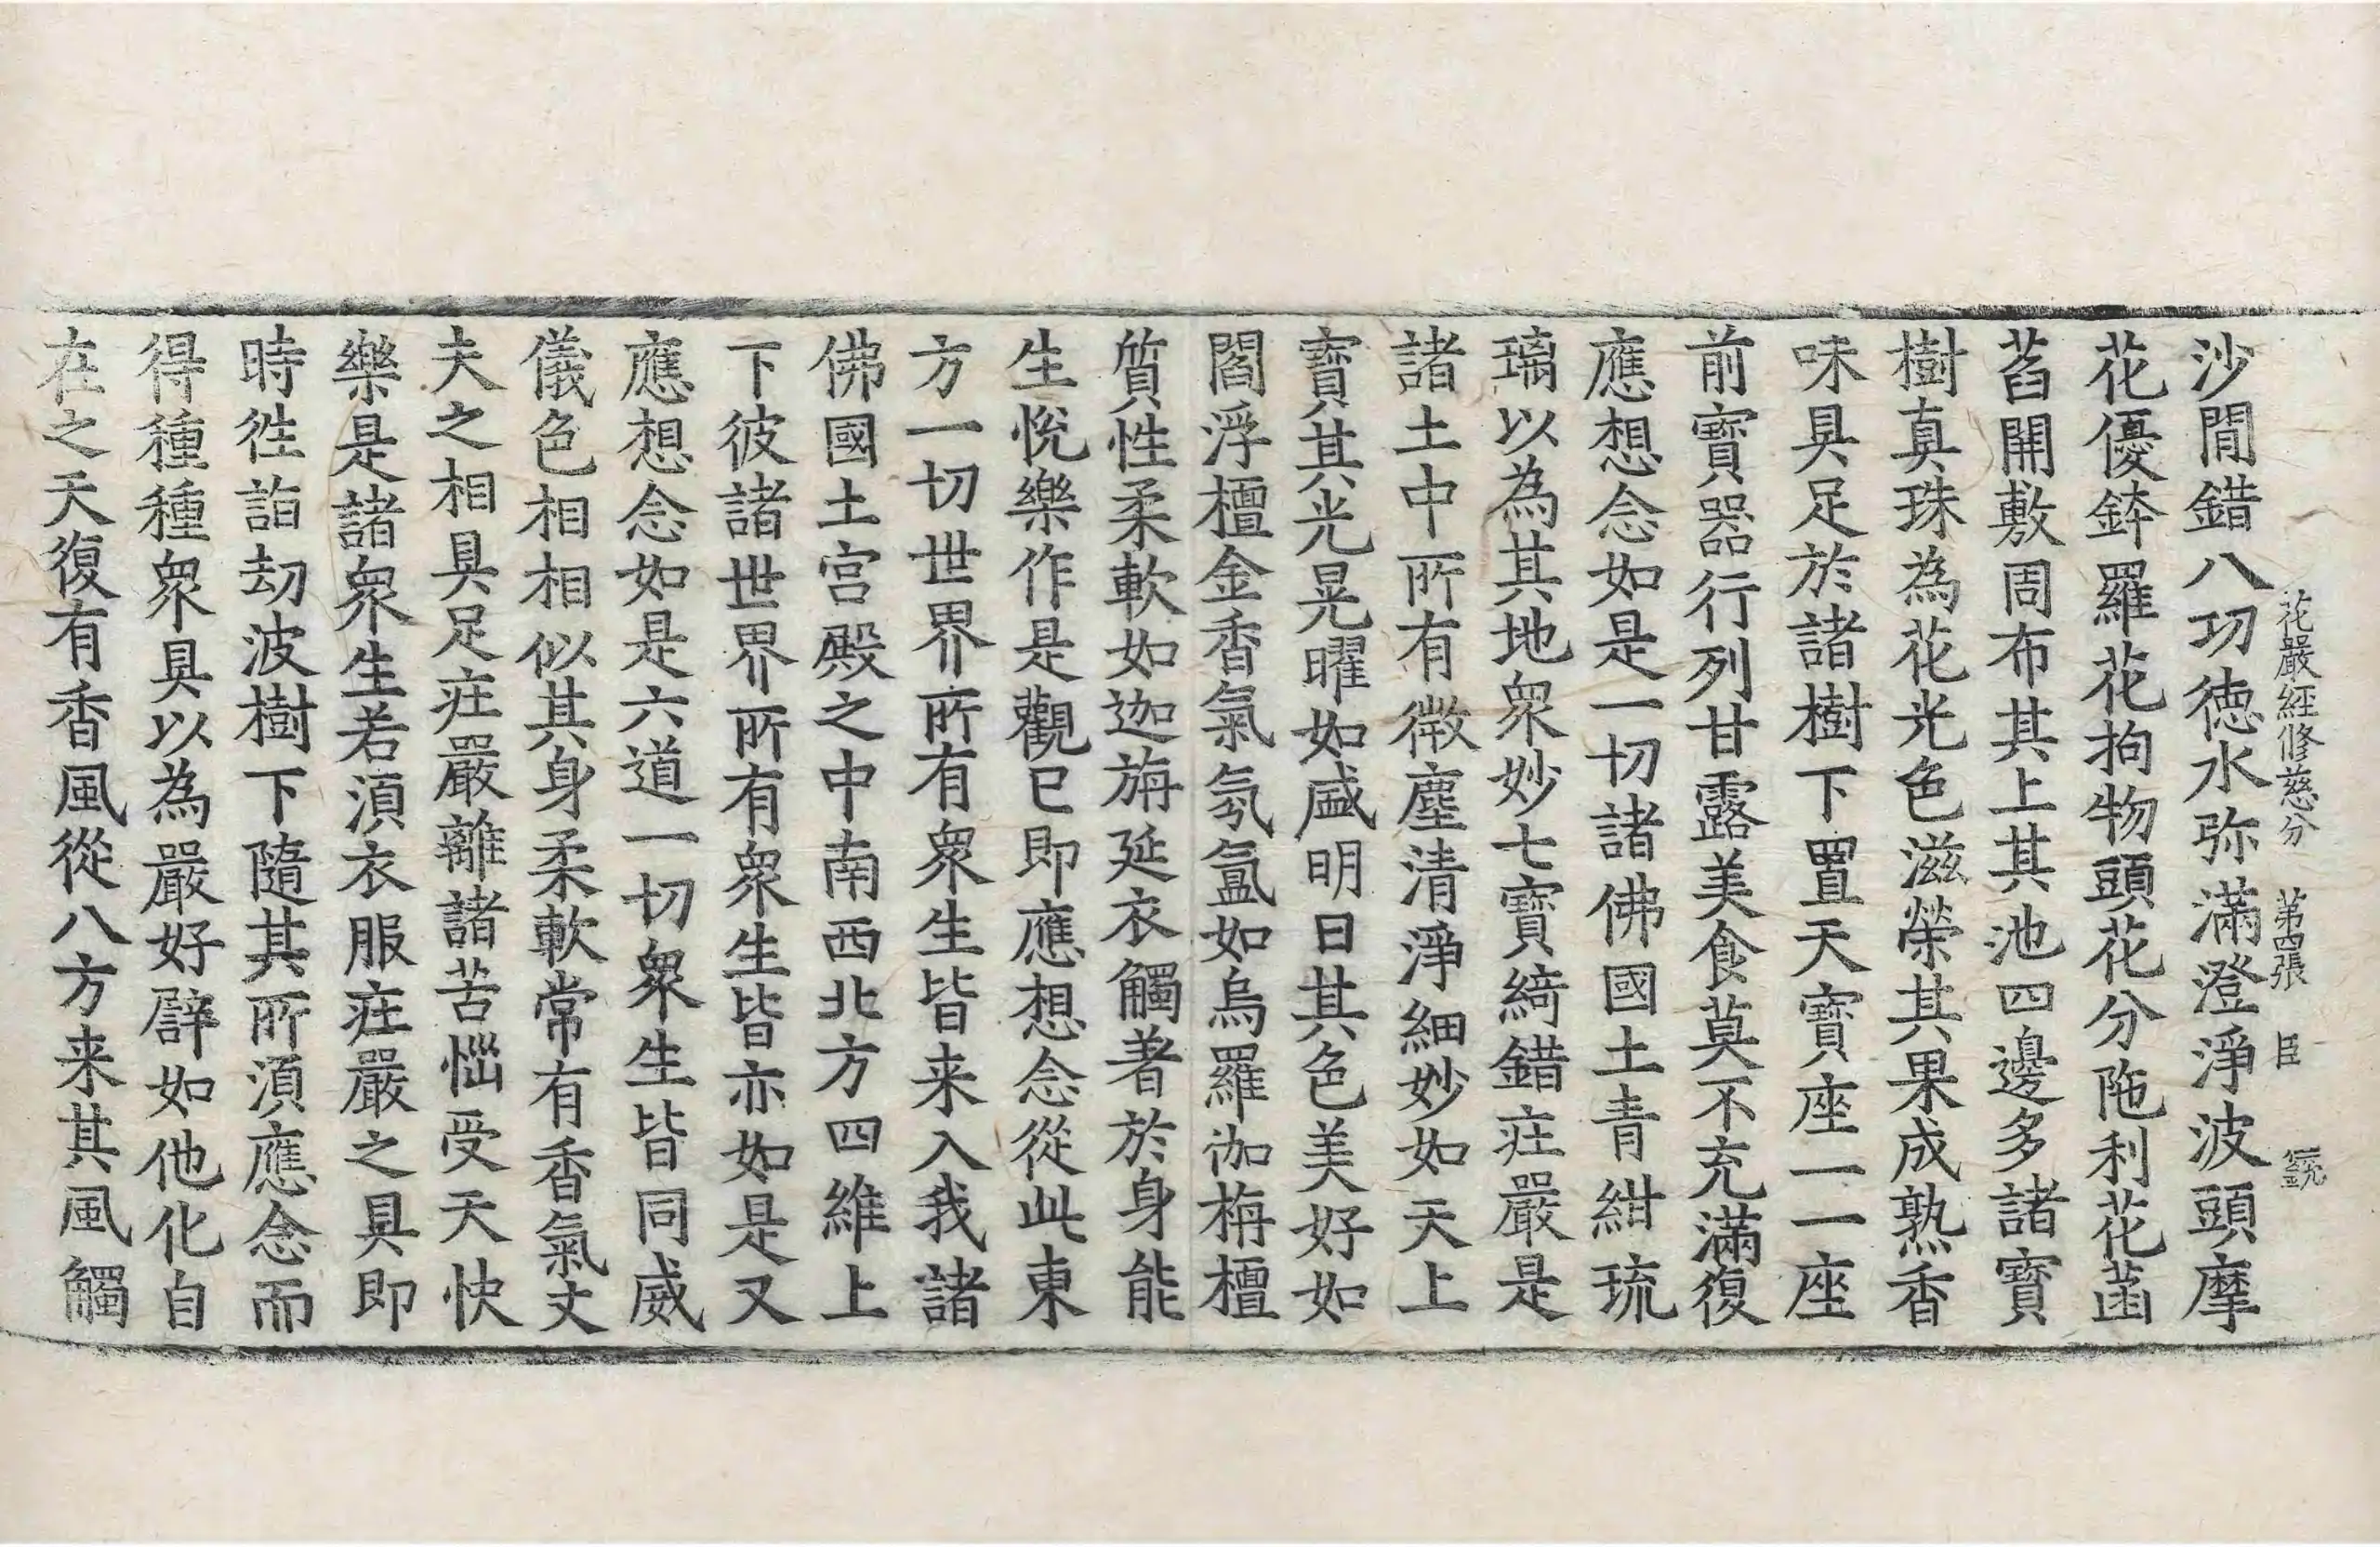 花嚴經修慈分 第四張 臣 銃
沙間錯八功徳水弥滿澄淨波頭摩
花優鉢羅花拘物頭花分陁利花菡
萏開敷周布其上其池四邊多諸寶
樹真珠為花光色滋榮其果成熟香
味具足於諸樹下置天寶座一一座
前寶器行列甘露美食莫不充滿復
應想念如是一切諸佛國土青紺琉
璃以為其地衆妙七寶綺錯荘嚴是
諸土中所有微塵清淨細妙如天上
寶其光晃曜如盛明日其色美好如
閻浮檀金香氣氛氲如烏羅伽栴檀
質性柔軟如迦旃延衣觸著於身能
生悅樂作是觀已即應想念從此東
方一切世界所有衆生皆来入我諸
佛國土宮殿之中南西北方四維上
下彼諸世界所有衆生皆亦如是又
應想念如是六道一切衆生皆同威
儀色相相似其身柔軟常有香氣丈
夫之相具足荘嚴離諸苦惱受天快
樂是諸衆生若湏衣服荘嚴之具即
時徃詣劫波樹下隨其所湏應念而
得種種衆具以為嚴好譬如他化自
在之天復有香風從八方来其風觸